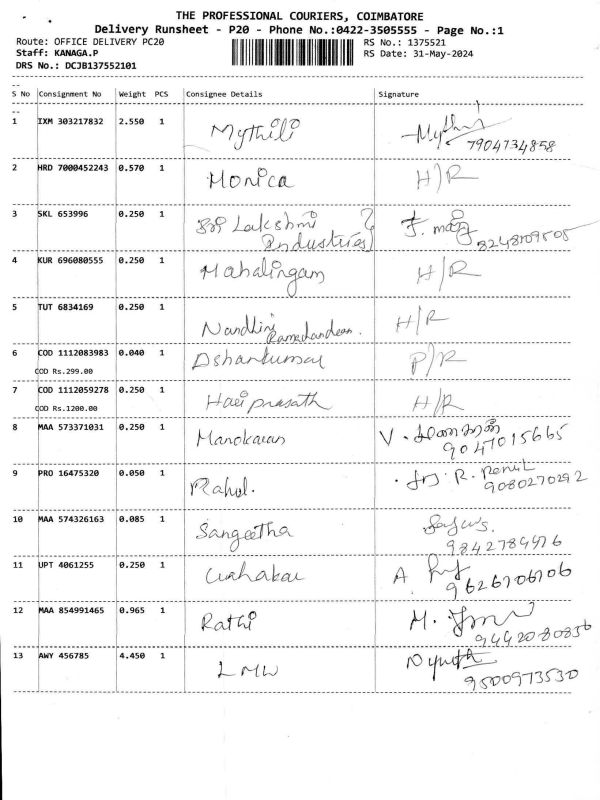 THE PROFESSIONAL COURIERS, COIMBATORE
Delivery Runsheet - P20 - Phone No.:0422-3505555 - Page No.:1
Route: OFFICE DELIVERY PC20 RS No.: 1375521
Staff: KANAGA.P RS Date: 31-May-2024
DRS No.: DCJB137552101
S No Consignment No Weight PCS Consignee Details Signature
1 IXM 303217832 2.550 1 Mythili
7904734858
2 HRD 7000452243 0.570 1 Monica H/R
3 SKL 653996 0.250 1 Sri Lakshmi
Industries
4 KUR 696080555 0.250 1 Mahalingam H/R
5 TUT 6834169 0.250 1 Nandhini H/R
Ramachandran.
6 COD 1112083983 0.040 1 P/R
COD Rs.299.00
7 COD 1112059278 0.250 1 Hari prasath H/R
COD Rs.1200.00
8 MAA 573371031 0.250 1 Manokaran V.
9047015665
9 PRO 16475320 0.050 1 Rahul.
9080270292
10 MAA 574326163 0.085 1 Sangeetha
11 UPT 4061255 0.250 1 A
9626706706
12 MAA 854991465 0.965 1 Rathi M.
9442080836
13 AWY 456785 4.450 1 LMW
9500973530